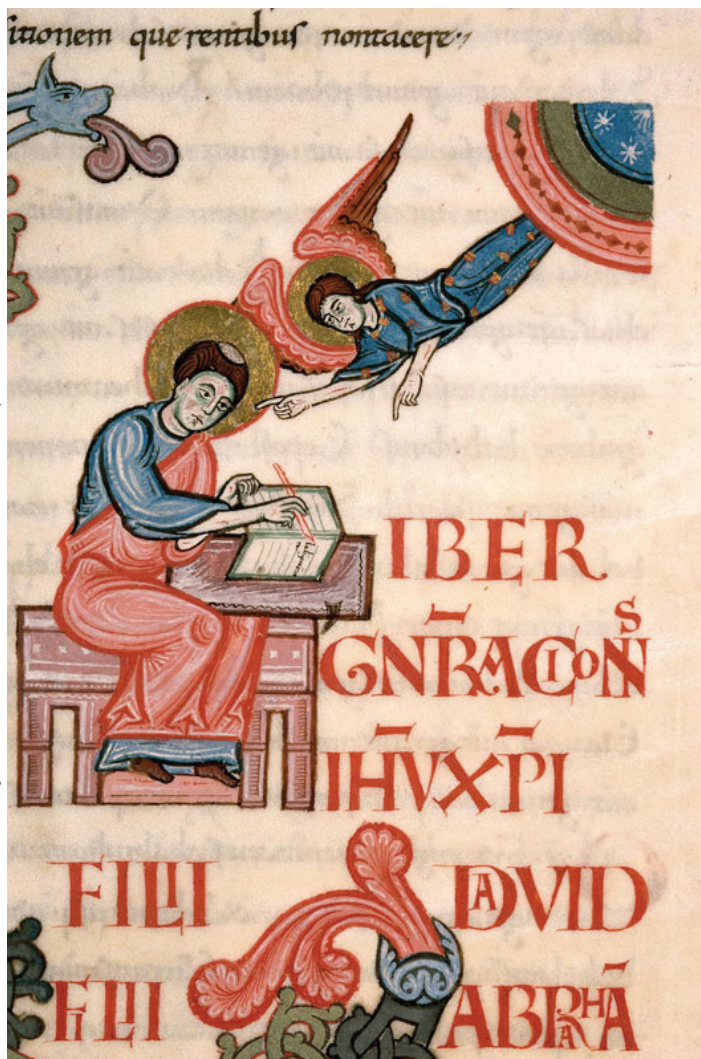 itionem que rentibus non tacere
IBER
GN̄RACIONIS
IHV̄ XP̄I
FILII DAVID
FILII ABRAHĀ